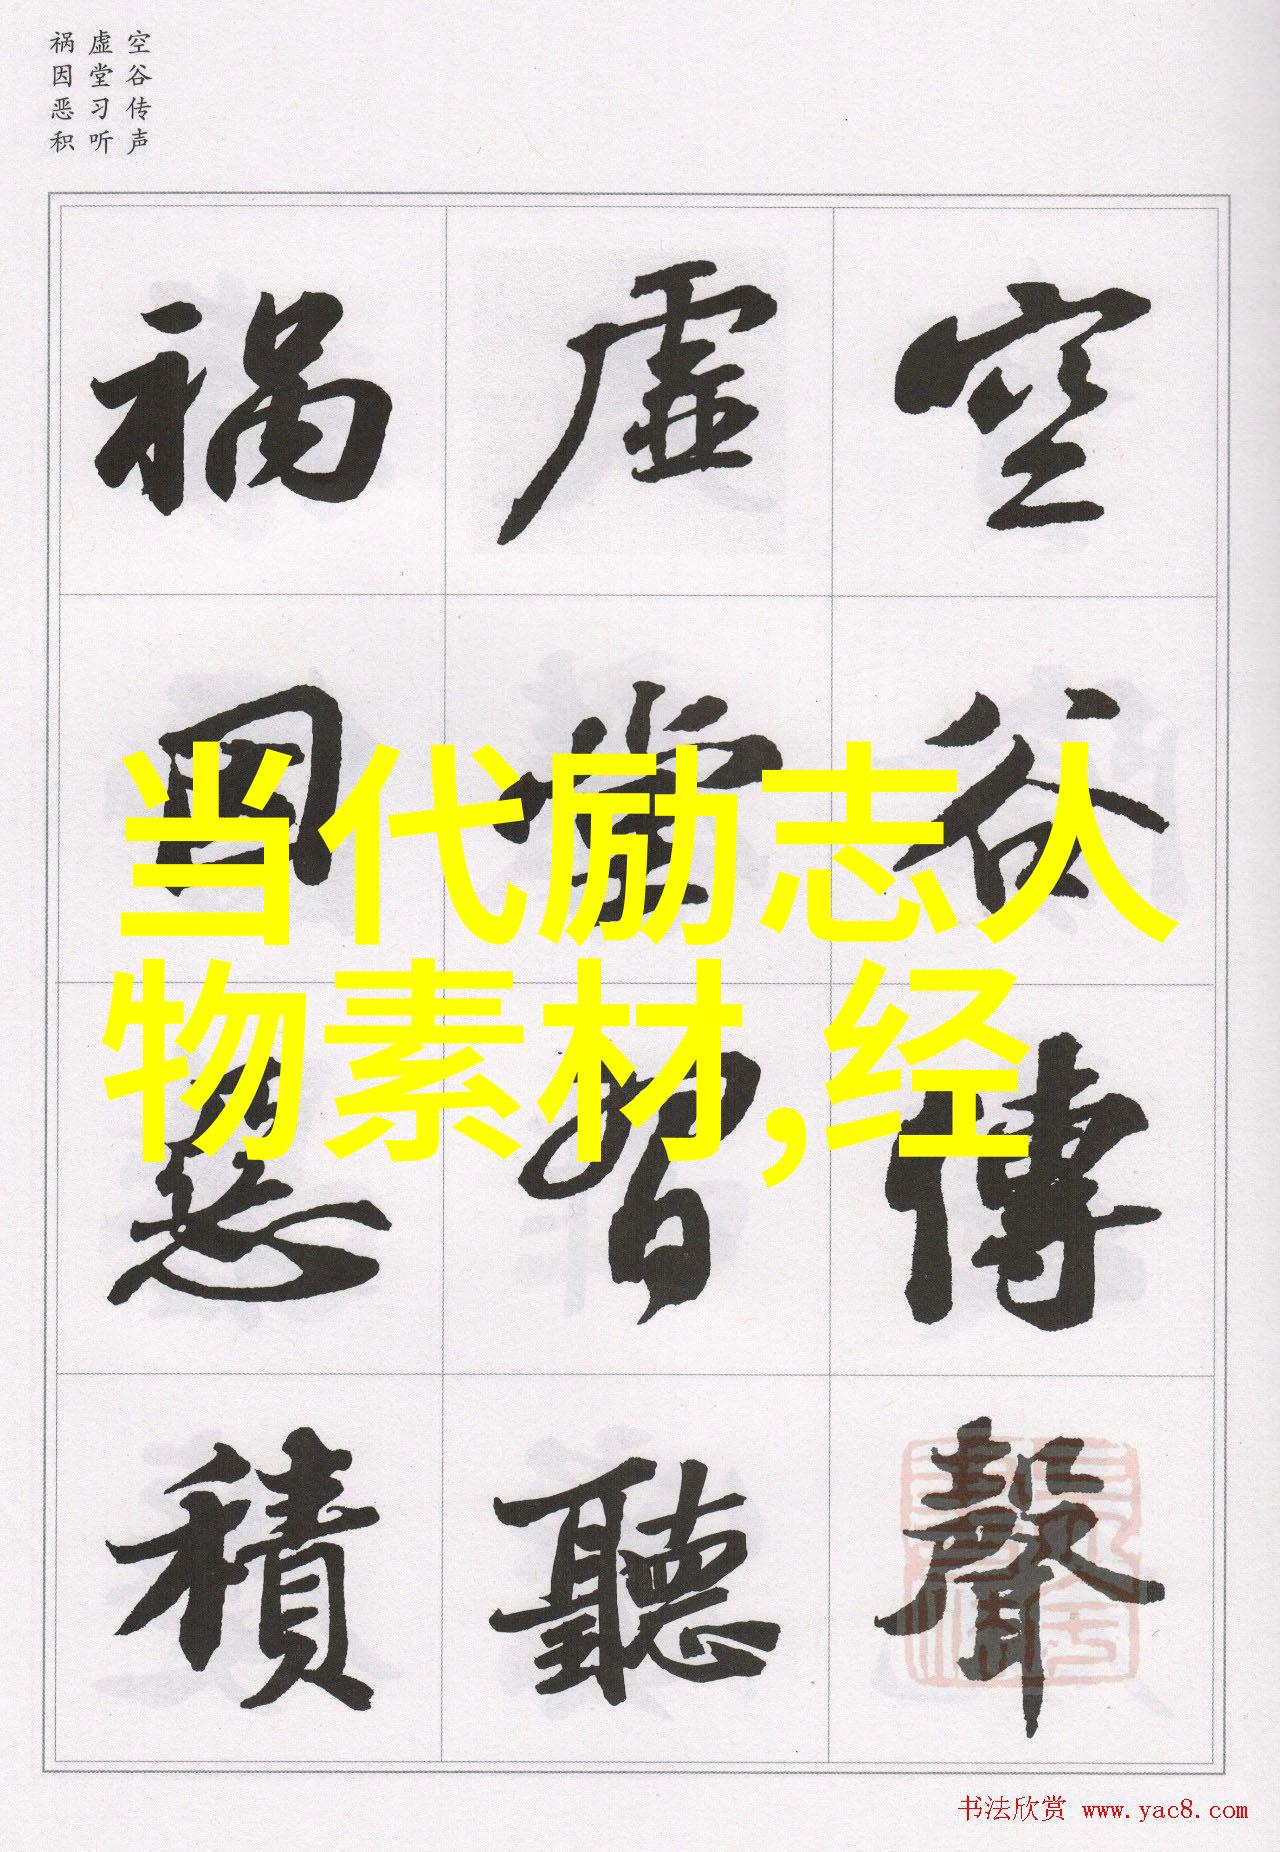 空谷传声
虚堂习听
祸因恶积
空谷傳聲
虛堂習聽
禍因惡積
当代励志人
物素材,经
书法欣赏 www.yac8.com